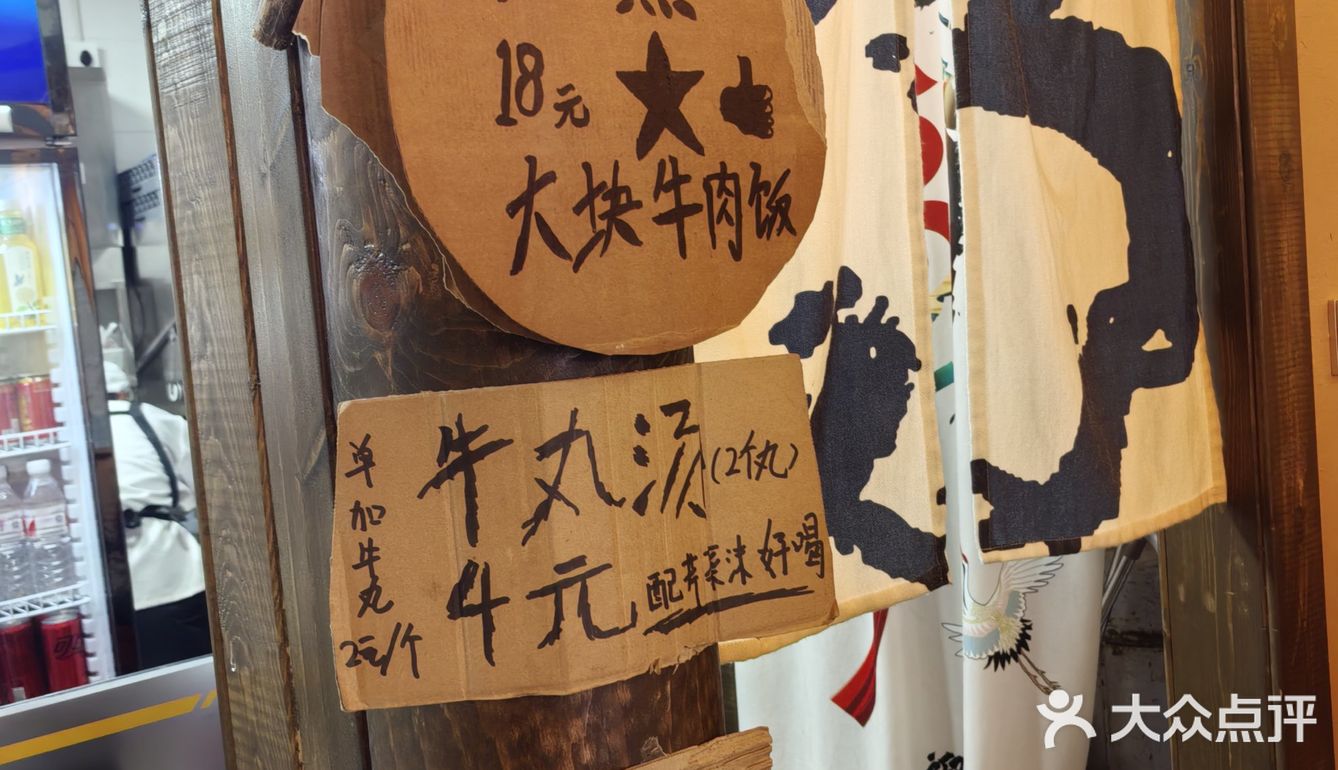 18元
大块牛肉饭
单加牛丸2元/个
牛丸汤(2个丸)
4元 配芹菜沫好喝
大众点评